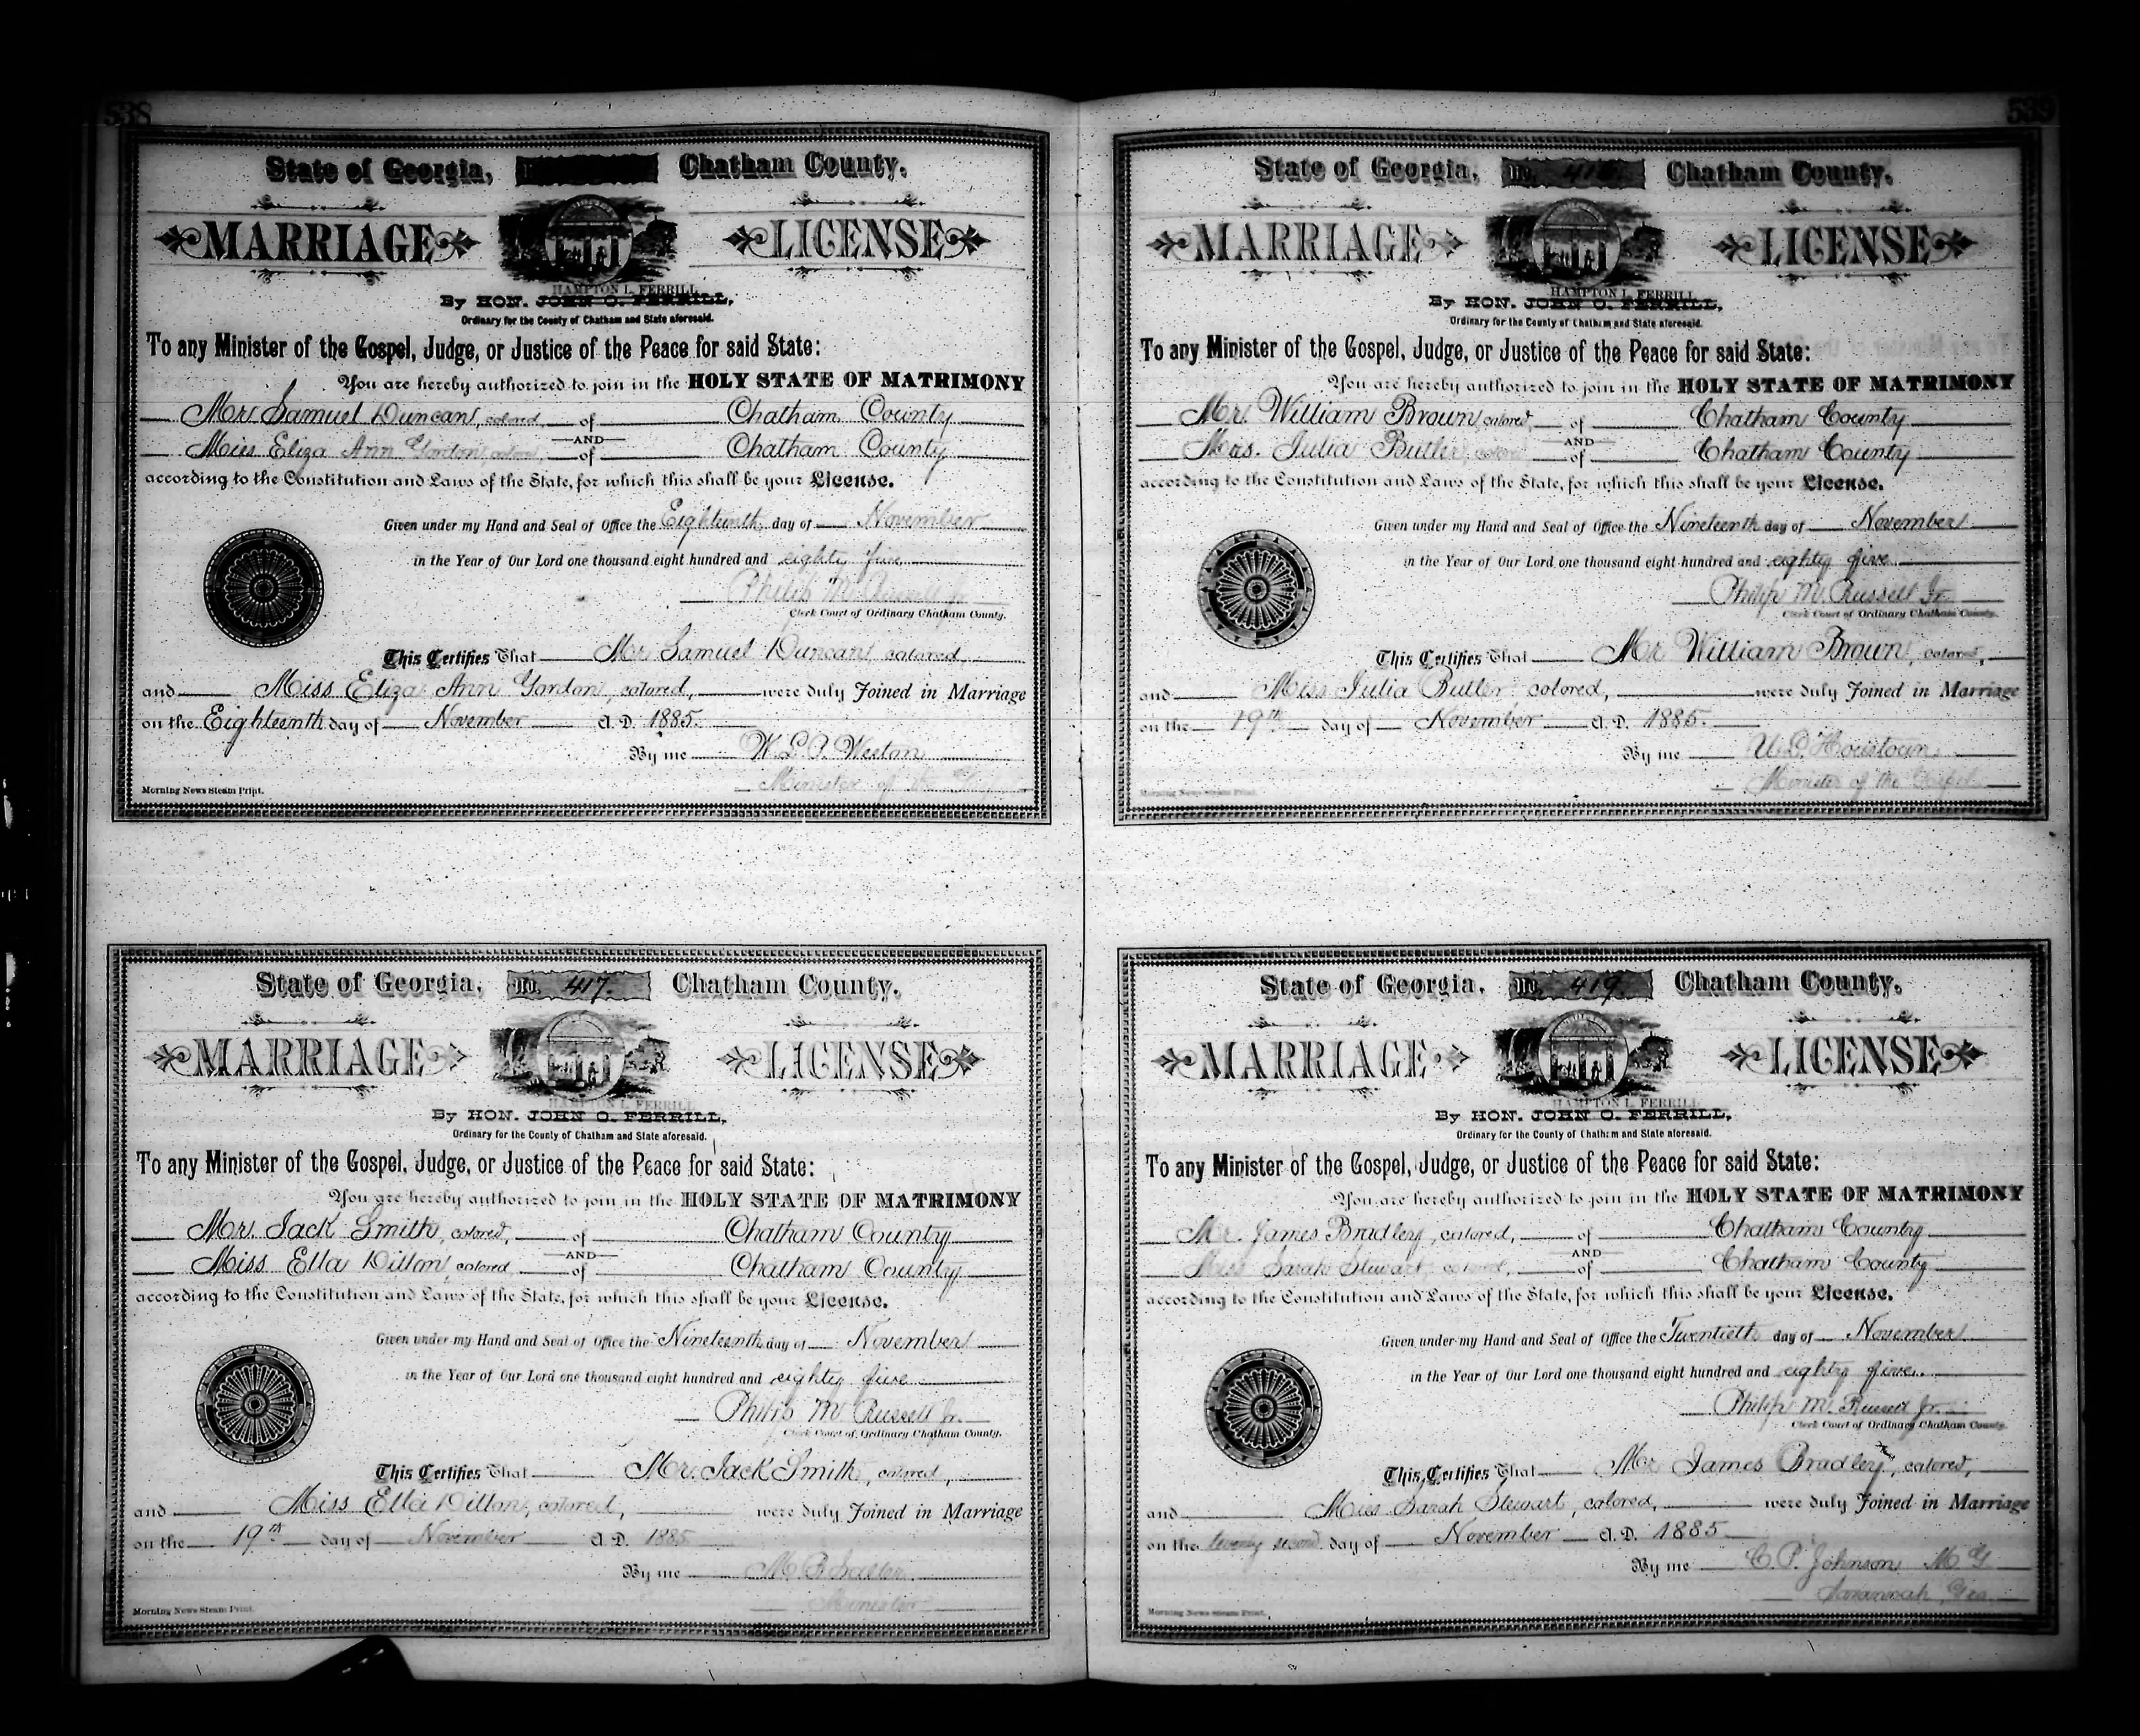 538
State of Georgia, Chatham County.
MARRIAGE LICENSE
HAMPTON L. FERRILL
By HON. JOHN O. FERRILL,
Ordinary for the County of Chatham and State aforesaid.
To any Minister of the Gospel, Judge, or Justice of the Peace for said State:
You are hereby authorized to join in the HOLY STATE OF MATRIMONY
Mr. Samuel Duncan, colored, of Chatham County
AND
Miss Eliza Ann Gordon, colored, of Chatham County
according to the Constitution and Laws of the State, for which this shall be your License.
Given under my Hand and Seal of Office the Eighteenth day of November
in the Year of Our Lord one thousand eight hundred and eighty five
Philip M. Russell Jr.
Clerk Court of Ordinary Chatham County.
This Certifies That Mr Samuel Duncan, colored,
and Miss Eliza Ann Gordon, colored, were duly Joined in Marriage
on the Eighteenth day of November A. D. 1885.
By me W. L. P. Weston
Minister of the Gospel
Morning News Steam Print.
No. 417.
State of Georgia, Chatham County.
MARRIAGE LICENSE
HAMPTON L. FERRILL
By HON. JOHN O. FERRILL,
Ordinary for the County of Chatham and State aforesaid.
To any Minister of the Gospel, Judge, or Justice of the Peace for said State:
You are hereby authorized to join in the HOLY STATE OF MATRIMONY
Mr. Jack Smith, colored, of Chatham County
AND
Miss Ella Dillon, colored of Chatham County
according to the Constitution and Laws of the State, for which this shall be your License.
Given under my Hand and Seal of Office the Nineteenth day of November
in the Year of Our Lord one thousand eight hundred and eighty five
Philip M. Russell Jr.
Clerk Court of Ordinary Chatham County.
This Certifies That Mr. Jack Smith, colored,
and Miss Ella Dillon, colored, were duly Joined in Marriage
on the 19th day of November A. D. 1885
By me
Minister
Morning News Steam Print.
539
State of Georgia, No. 418 Chatham County.
MARRIAGE LICENSE
HAMPTON L. FERRILL
By HON. JOHN O. FERRILL,
Ordinary for the County of Chatham and State aforesaid.
To any Minister of the Gospel, Judge, or Justice of the Peace for said State:
You are hereby authorized to join in the HOLY STATE OF MATRIMONY
Mr. William Brown colored, of Chatham County
AND
Julia Butler colored of Chatham County
according to the Constitution and Laws of the State, for which this shall be your License.
Given under my Hand and Seal of Office the Nineteenth day of November
in the Year of Our Lord one thousand eight hundred and eighty five
Philip M. Russell Jr.
Clerk Court of Ordinary Chatham County.
This Certifies That Mr William Brown, colored,
and Miss Julia Butler colored, were duly Joined in Marriage
on the 19th day of November A. D. 1885.
By me U. L. Houstoun
Minister of the Gospel
Morning News Steam Print.
State of Georgia, No. 419. Chatham County.
MARRIAGE LICENSE
HAMPTON L. FERRILL
By HON. JOHN O. FERRILL,
Ordinary for the County of Chatham and State aforesaid.
To any Minister of the Gospel, Judge, or Justice of the Peace for said State:
You are hereby authorized to join in the HOLY STATE OF MATRIMONY
Mr. James Bradley, colored, of Chatham County
AND
Miss Sarah Stewart, colored, of Chatham County
according to the Constitution and Laws of the State, for which this shall be your License.
Given under my Hand and Seal of Office the Twentieth day of November
in the Year of Our Lord one thousand eight hundred and eighty five.
Philip M. Russell Jr.
Clerk Court of Ordinary Chatham County.
This Certifies That Mr James Bradley, colored,
and Miss Sarah Stewart, colored, were duly Joined in Marriage
on the twenty second day of November A. D. 1885
By me C. P. Johnson M G
Savannah, Geo.
Morning News Steam Print.